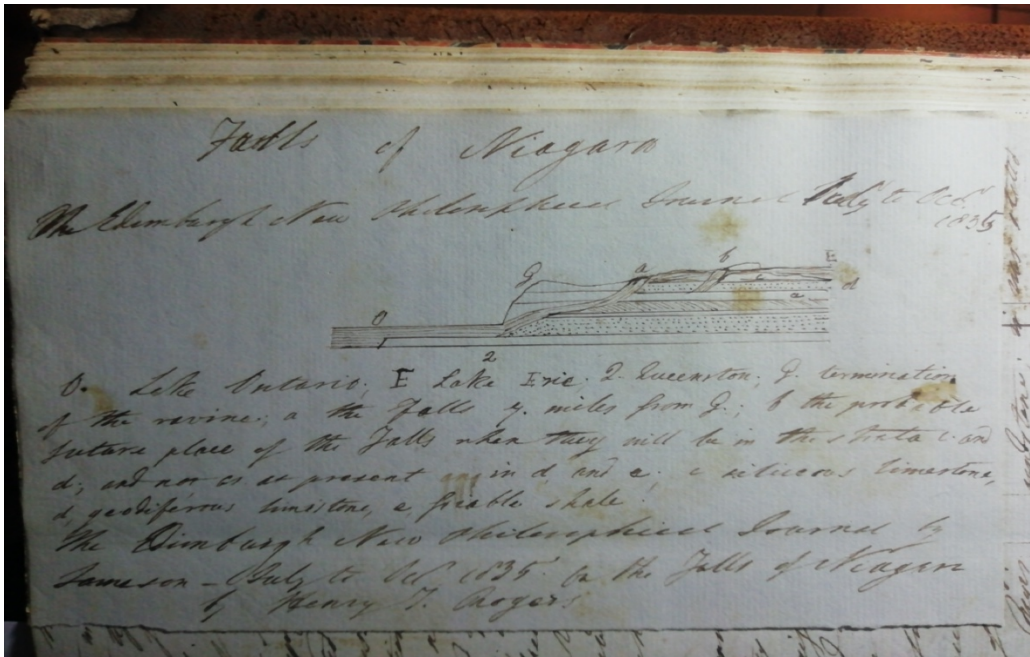 Falls of Niagara
The Edimburgh New Philosophical Journal July to Octr.
1835
g a b E
c d
O e
2
O. Lake Ontario; E Lake Erie; 2. Queenston; g. termination
of the ravine; a the Falls 7. miles from g.; b the probable
future place of the Falls when they will be in the strata c. and
d; and not as at present in d, and e; c siliceous limestone,
d, geodiferous limestone, e, friable shale.
The Edimburgh New Philosophical Journal by
Jameson – (July to Octr. 1835. On the Falls of Niagara
by Henry Rogers